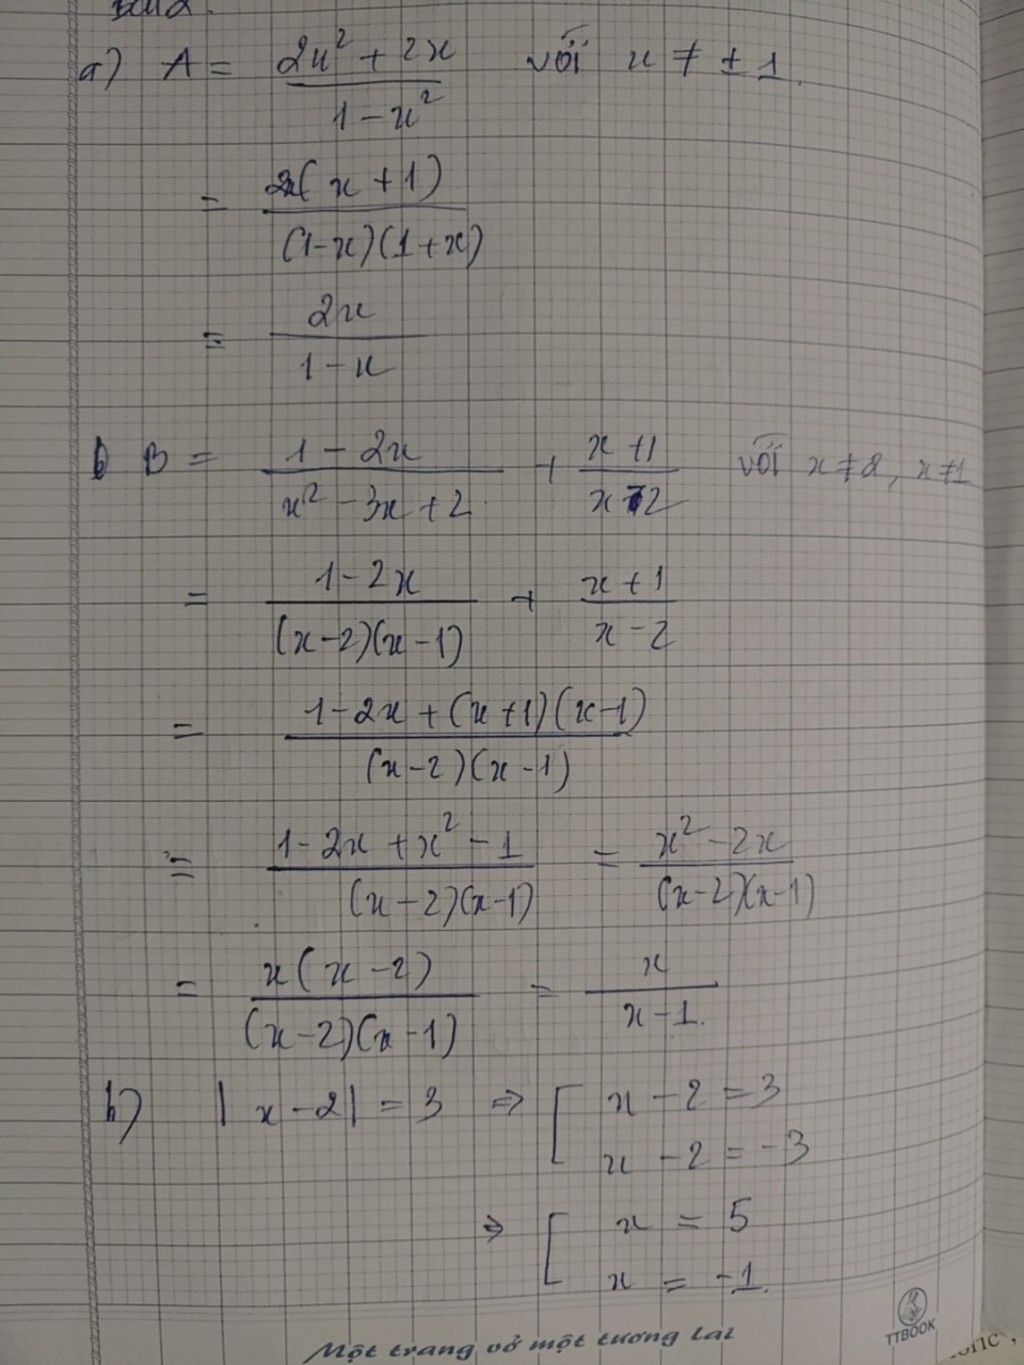 a) A = (2x² + 2x)/(1 - x²) với x ≠ ± 1.
= 2x(x + 1)/((1-x)(1+x))
= 2x/(1 - x)
b B = (1 - 2x)/(x² - 3x + 2) + (x + 1)/(x - 2) với x ≠ 2, x ≠ 1
= (1 - 2x)/((x-2)(x-1)) + (x + 1)/(x - 2)
= (1 - 2x + (x+1)(x-1))/((x-2)(x-1))
= (1 - 2x + x² - 1)/((x-2)(x-1)) = (x² - 2x)/((x-2)(x-1))
= x(x-2)/((x-2)(x-1)) = x/(x-1).
b) |x - 2| = 3 ⇒ [ x - 2 = 3
x - 2 = -3
⇒ [ x = 5
x = -1.
Một trang vở một tương lai
TTBOOK